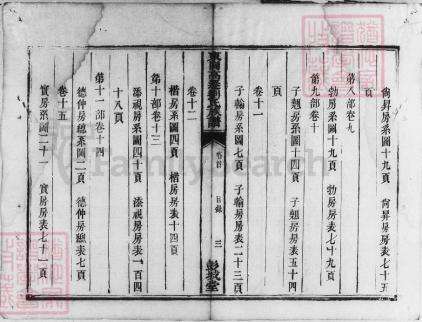 尙昇房系圖十九頁 尙昇房房表七十五
頁
第八部卷九
勃房系圖十九頁 勃房房表七十九頁
第九部卷十
子翹房系圖十四頁 子翹房房表五十四
頁
卷十一
子翰房系圖七頁 子翰房房表二十三頁
卷首 目錄 三 彭城堂
卷十二
楷房系圖四頁 楷房房表十四頁
第十部卷十三
添視房系圖四十頁 添視房房表一百四
十八頁
第十一部卷十四
德仲房總系圖二頁 德仲房總表七頁
卷十五
實房系圖二十一頁 實房房表七十一頁